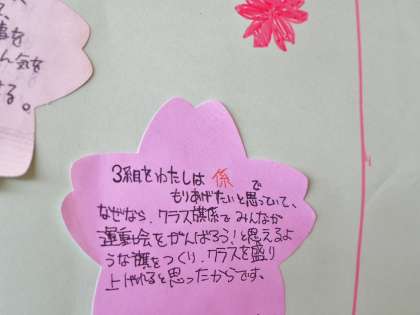 事を
ん気を
る。
3組をわたしは 係 で
もりあげたいと思っていて、
なぜなら、クラス旗係でみんなが
運動会をがんばろう!と思えるよ
うな旗をつくり、クラスを盛り
上げれると思ったからです。